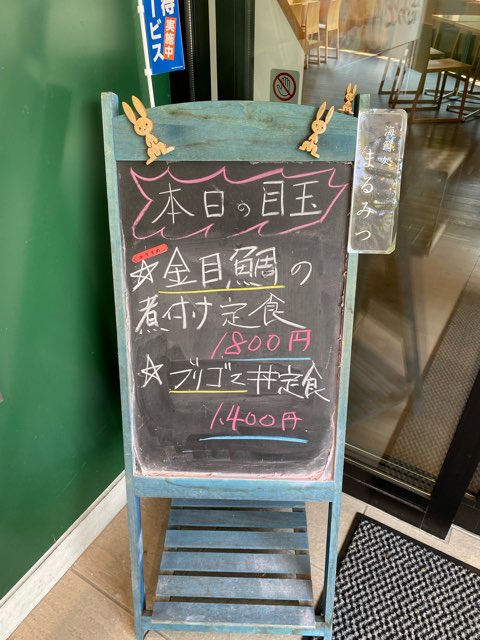 得
実施中
ービス
海鮮処
まるみつ
本日の目玉
☆金目鯛の
煮付け定食
1800円
☆ブリゴマ丼定食
1,400円